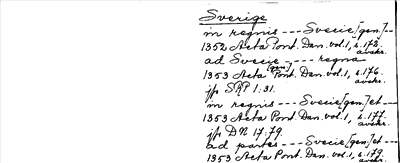 Sverige
in regnis --- Svecie [gen] --
1352 Acta Pont. Dan. vol. 1, s. 172.
avskr.
ad Svecie [gen] --- regna
1353 Acta Pont. Dan. vol. 1, s. 176.
avskr.
jfr SRP 1:31.
in regnis --- Svecie [gen] et ---
1353 Acta Pont. Dan. vol. 1, s. 177.
avskr.
jfr DN 17.79.
ad partes --- Svecie [gen] et --
1353 Acta Pont. Dan. vol. 1, s. 179.
avskr.